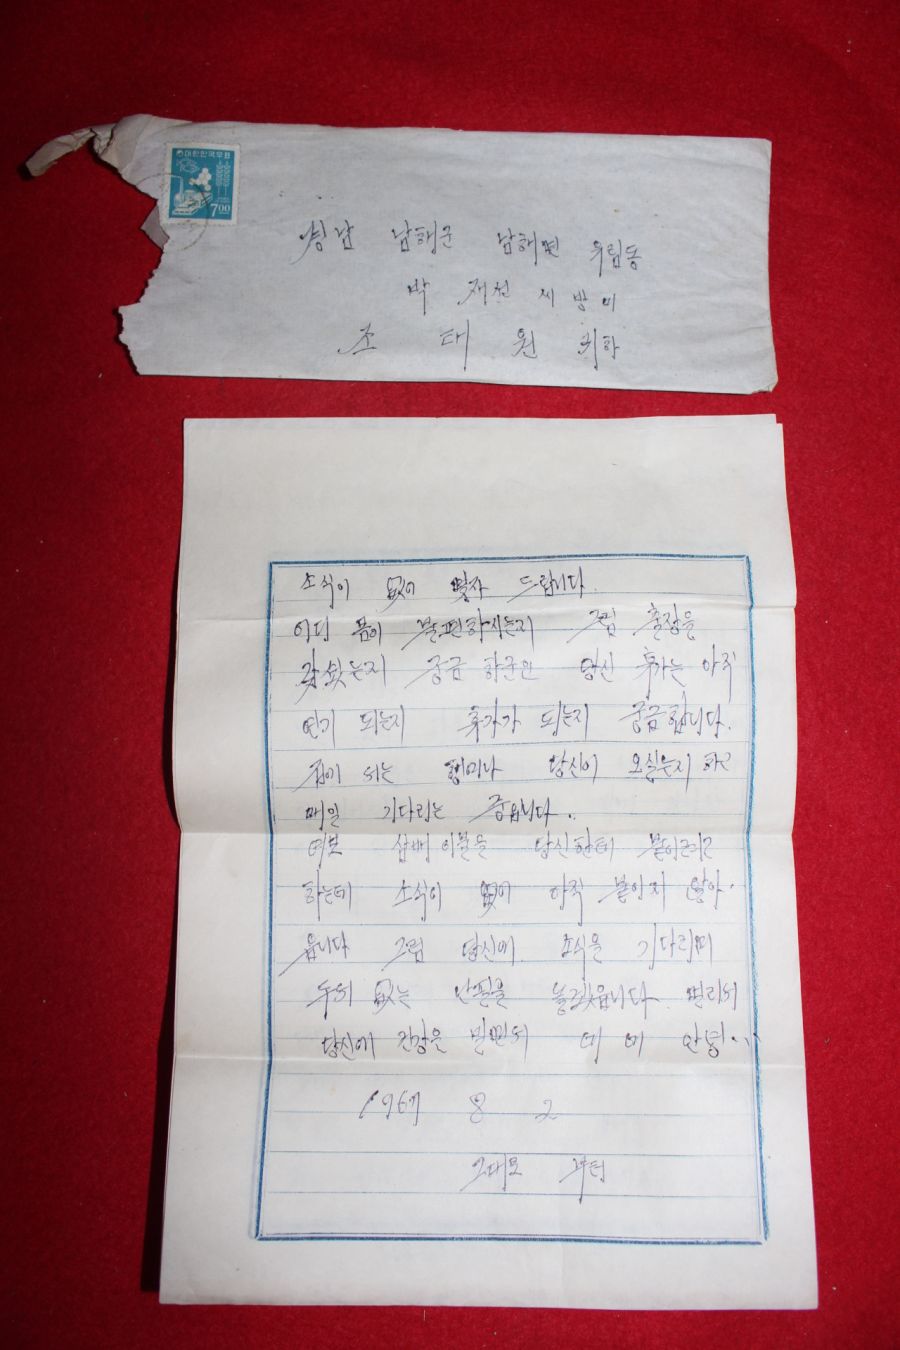 대한민국우표
7 00
경남 남해군 남해면 우림동
박 재선 씨 방 미
조 태 원 귀하
소식이 없어 몇자 드립니다.
어디 몸이 불편하시는지 그럼 출장을
갖섰는지 궁금 하군요 당신 휴가는 아직
연기 되는지 휴가가 되는지 궁금합니다.
집에 서는 행여나 당신이 오실는지 하고
매일 기다리는 중입니다..
여보 삼베 이불을 당신한테 붙이려고
하는데 소식이 없어 아직 붙이지 않아.
읍니다 그럼 당신에 소식을 기다리며
두서 없는 난필을 놓겠읍니다. 멀리서
당신에 건강을 빌면서 이 만 안녕...
1967 8 2
부터